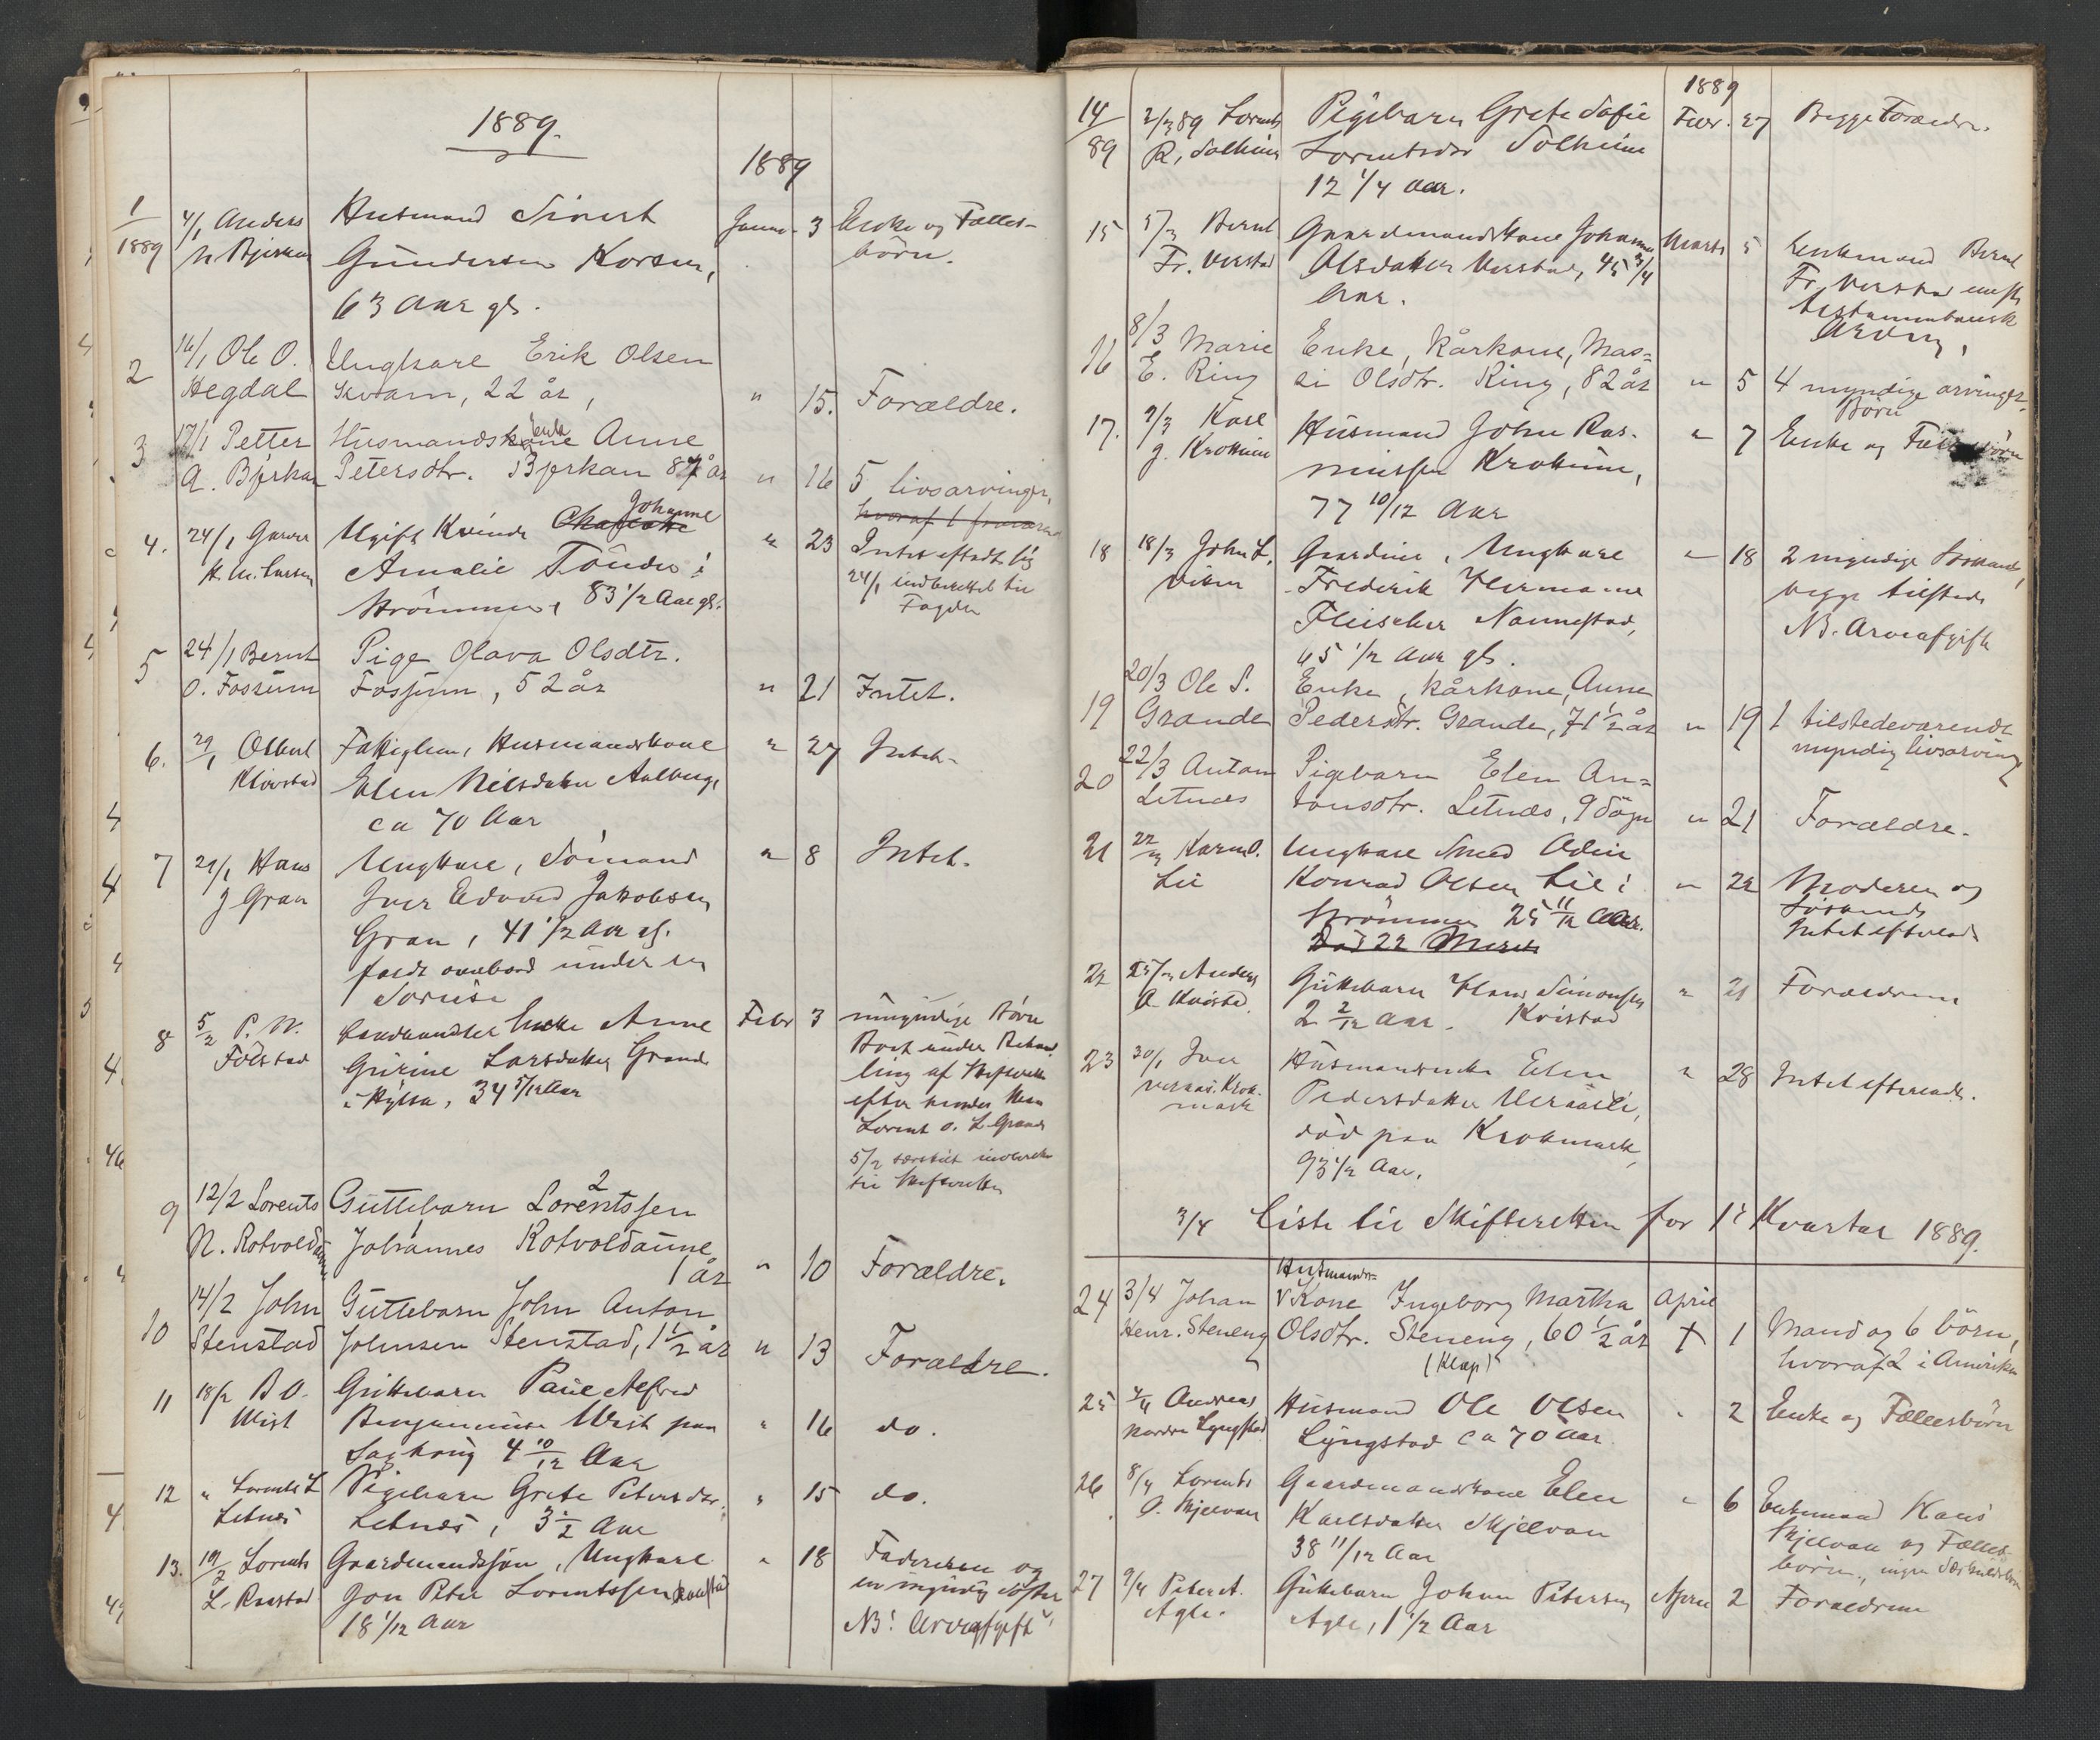 1889.
1889
1/1889 4/1 Anders Husmand Sivert Januar 3 Enke og Fælles-
N Bjerkan Gundersen Korsen, børn.
63 Aar gl.
2 16/1 Ole O. Ungkare Erik Olsen
Hegdal Kvam, 22 år, " 15. Forældre.
3 17/1 Petter Husmandskone enke Anne
A. Bjerkan Petersdtr. Bjerkan 87 år " 16 5 livsarvinger,
hvoraf 1
4. 24/1 Ugift Kvinde Charlotte Johanne " 23 Intet efterladt sig
H. M. Larsen Amalie Tönder i 24/1 indberettet til
Strömmen, 83 1/2 Aar gl. Fogden
5 24/1 Bernt Pige Olava Olsdtr.
O. Fossum Fossum, 52 år " 21 Intet.
6. 29/1 Albert Fattiglem, Husmandskone " 27 Intet.
Klövstad Elen Nilsdatter Aalberg,
ca 70 Aar
7 29/1 Hans Ungkare, Sömand " 8 Intet.
J Gran Iver Edvard Jakobsen
Gran, 41 1/2 Aar gl.
faldt overbord under en
Söreise
8 5/2 P. N. Landhandler Enke Anne Febr 3 umyndige Börn
Følstad Gurine Larsdatter Grande Boet under Behand
i Hylla, 34 5/12 Aar ling af Skifteretten
efter hendes Man
Lorent O. L Grande
5/2 særskilt indberettet
til Skifteretten
9 12/2 Lorents Guttebarn Lorentssen 2
N. Rotvoldaune Johannes 1 Rotvoldaune
1 år " 10 Forældre.
10 14/2 John Guttebarn John Anton
Stenstad Johnsen Stenstad, 1 1/2 år " 13 Forældre.
11 18/2 B O. Guttebarn Paul Alfred
Wist Benjaminsen Wist paa " 16 do.
4 10/12 Aar
12 " Lorents L Pigebarn Grete Petersdtr. " 15 do.
Letnes Letnes, 3 1/2 Aar
13. 19/2 Lorents Gaardmandssøn, Ungkare " 18 Faderen og
L. Raastad Jon Peter Lorentssen Raastad en myndig Søster
18 1/12 Aar NB! Arveafgift
1889
14/89 2/3 89 Lorents Pigebarn Grete Sofie Febr. 27 Begge Forældre.
R. Solheim Lorentsdtr Solheim
12 1/4 Aar.
15 5/3 Bernt Gaardmandskone Johanna Marts 5 Enkemand Bernt
Fr. Verstad Olsdatter Verstad, 45 3/4 Fr. Verstad eneste
Aar. testamentarisk
Arving,
16 8/3 Marie Enke, kårkone, Mas=
E. Ring si Olsdtr. Ring, 82 år " 5 4 myndige arvinger.
Börn
17. 9/3 Karl Husmand John Ras- " 7 Enke og Fællesbörn
g. Krokum mussen Krokum,
77 10/12 Aar
18 18/3 John L. Gaardeier, Ungkare " 18 2 myndige Söskende,
Viken Frederik Hermann begge tilstede
Fleischer Nannestad, NB. Arveafgift
45 1/2 Aar gl.
19 20/3 Ole P. Enke, kårkone, Anne
Grande Pedersdtr. Grande, 71 1/2 år " 19 1 tilstedeværende
myndig livsarving
20 22/3 Anton Pigebarn Elen An=
Letnes tonsdtr. Letnes, 9 dögn " 21 Forældre.
21 22/3 Karen O. Ungkare Smed Odin
Lie Konrad Olsen Lie i " 22 Moderen og
Strömmen 25 11/12 Aar. Söskende
Död 22 Marts Intet efterladt
22 25/3 Anders Guttebarn Hans Simonsen " 21 Forældrene
A Kvistad 2 2/12 Aar. Kvistad
23 30/1 Iver Husmandsenke Elen " 28 Intet efterladt.
Krok- Pedersdatter
mark död paa Krokmark,
93 1/2 Aar.
3/4 Liste til Skifteretten for 1ste Kvartal 1889.
24 3/4 Johan Husmands= Kone Ingeborg Martha April
Henr. Steneng Olsdtr. Steneng, 60 1/2 år † 1 Mand og 6 börn,
(Klap) hvoraf 2 i Amerika
25 4/4 Andreas Husmand Ole Olsen " 2 Enke og Fællesbörn
nordre Lyngstad Lyngstad ca 70 Aar.
26 8/4 Lorents Gaardmandskone Elen " 6 Enkemand Hans
O. Skjelvan Karlsdatter Skjelvan Skjelvan og Fælles-
38 11/12 Aar börn., ingen Særkuldsbörn
27 9/4 Peter A. Guttebarn Johan Petersen April 2 Forældrene
Agle. Agle, 1 1/2 Aar